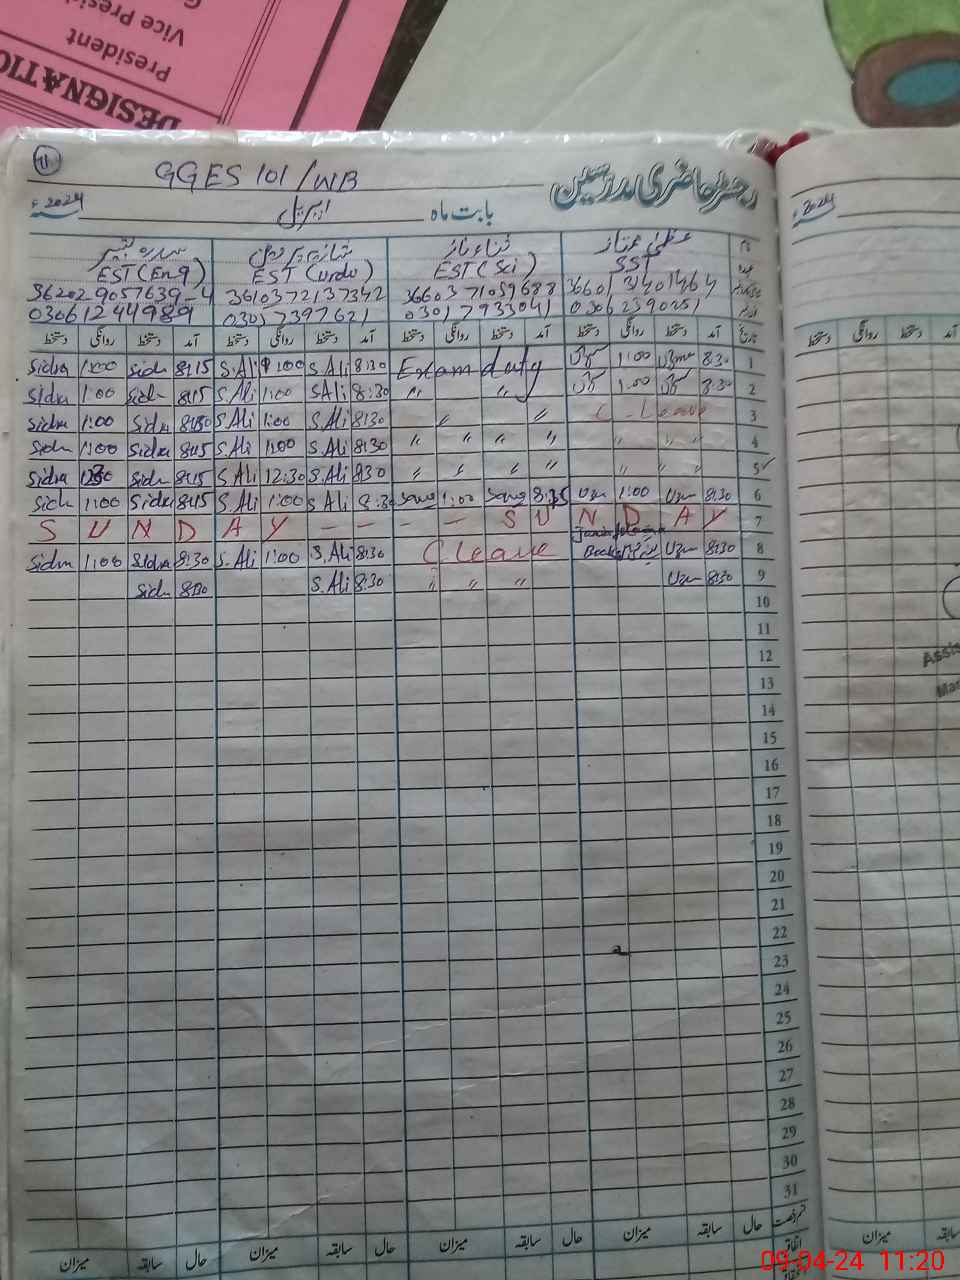 President
Vice Presid
DESIGNATIO
11
GGES 101/WB
رجسٹر حاضری مدرسین
2024ء
بابت ماہ اپریل
2024ء
سدرہ شبیر
ثناء ناز
عظمیٰ ممتاز
EST (Eng) EST (Urdu) EST (Sci) SST
362029057639-4 3610372137342 3660371059688 3660131401464
03061244989 03017397621 03017933041 03062390251
تاریخ آمد دستخط روانگی دستخط آمد دستخط روانگی دستخط آمد دستخط روانگی دستخط آمد دستخط روانگی دستخط
Sidra 1:00 Sidra 8:15 S.Ali 1:00 S.Ali 8:30 Exam duty 1:00 8:30 1
Sidra 1:00 Sidra 8:15 S.Ali 1:00 S.Ali 8:30 " " 1:00 8:30 2
Sidra 1:00 Sidra 8:30 S.Ali 1:00 S.Ali 8:30 " " C. Leave 3
Sidra 1:00 Sidra 8:15 S.Ali 1:00 S.Ali 8:30 " " " " " " " 4
Sidra 12:30 Sidra 8:15 S.Ali 12:30 S.Ali 8:30 " " " " " " " 5
Sidra 1:00 Sidra 8:15 S.Ali 1:00 S.Ali 8:30 1:00 8:35 Uzm 1:00 Uzm 8:30 6
S U N D A Y - - - - S U N D A Y 7
Sidra 1:00 Sidra 8:30 S.Ali 1:00 S.Ali 8:30 C leave Uzm 8:30 8
Sidra 8:30 S.Ali 8:30 " " " Uzm 8:30 9
10
11
12
13
14
15
16
17
18
19
20
21
22
23
24
25
26
27
28
29
30
31
حال سابقہ میزان حال سابقہ میزان حال سابقہ میزان حال سابقہ میزان
Assis
Mar
09-04-24 11:20